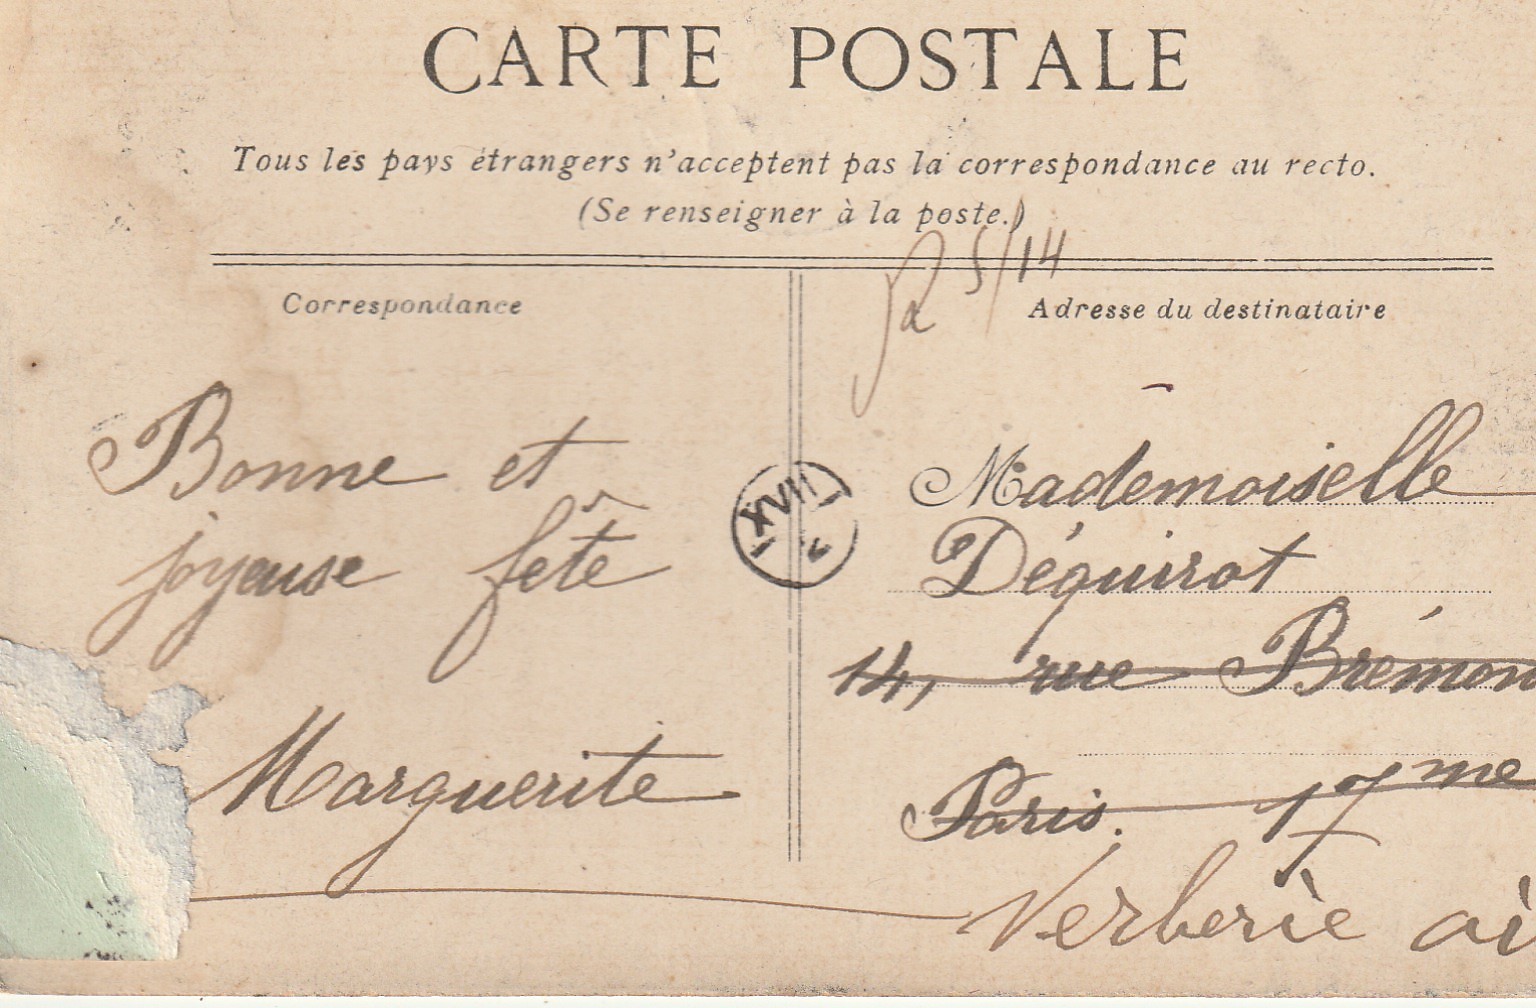 CARTE POSTALE
Tous les pays étrangers n'acceptent pas la correspondance au recto.
(Se renseigner à la poste.)
5/14
Correspondance
Bonne et
joyeuse fête
Marguerite
XVII
Adresse du destinataire
Mademoiselle
Déquirot
14, rue Brémon
Paris. 17me
Verberie